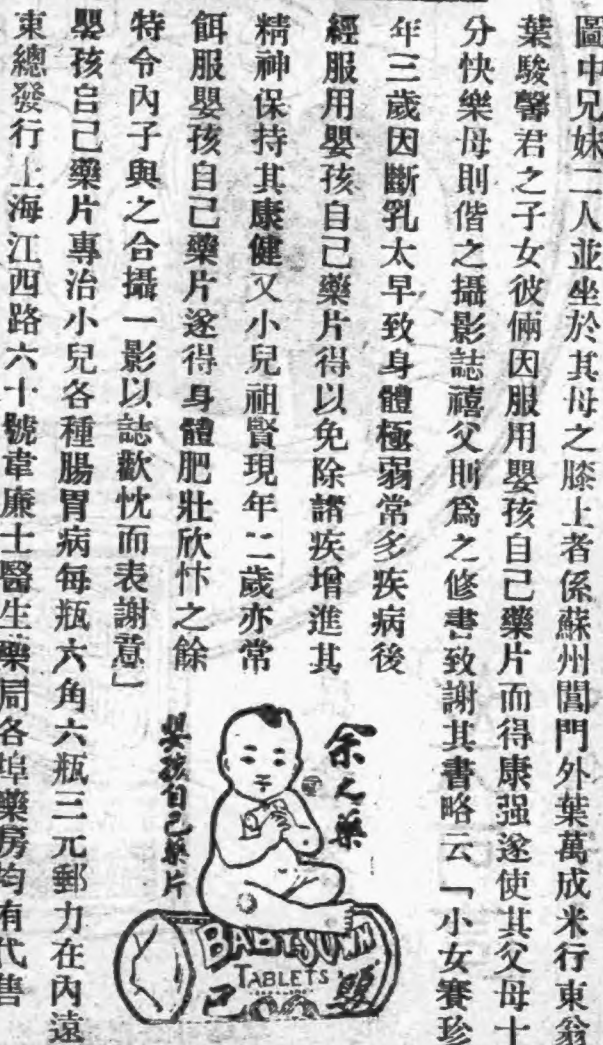 圖中兄妹二人並坐於其母之膝上者係蘇州閶門外葉萬成米行東翁
葉駿馨君之子女彼倆因服用嬰孩自己藥片而得康强遂使其父母十
分快樂母則偕之攝影誌禧父則爲之修書致謝其書略云「小女賽珍
年三歲因斷乳太早致身體極弱常多疾病後
經服用嬰孩自己藥片得以免除諸疾增進其
精神保持其康健又小兒祖賢現年二歲亦常
餌服嬰孩自己藥片遂得身體肥壯欣忭之餘
特令內子與之合攝一影以誌歡忱而表謝意」
嬰孩自己藥片專治小兒各種腸胃病每瓶六角六瓶三元郵力在內遠
東總發行上海江西路六十號韋廉士醫生藥局各埠藥房均有代售
余之藥
嬰孩自己藥片
BABY'S OWN
TABLETS
己